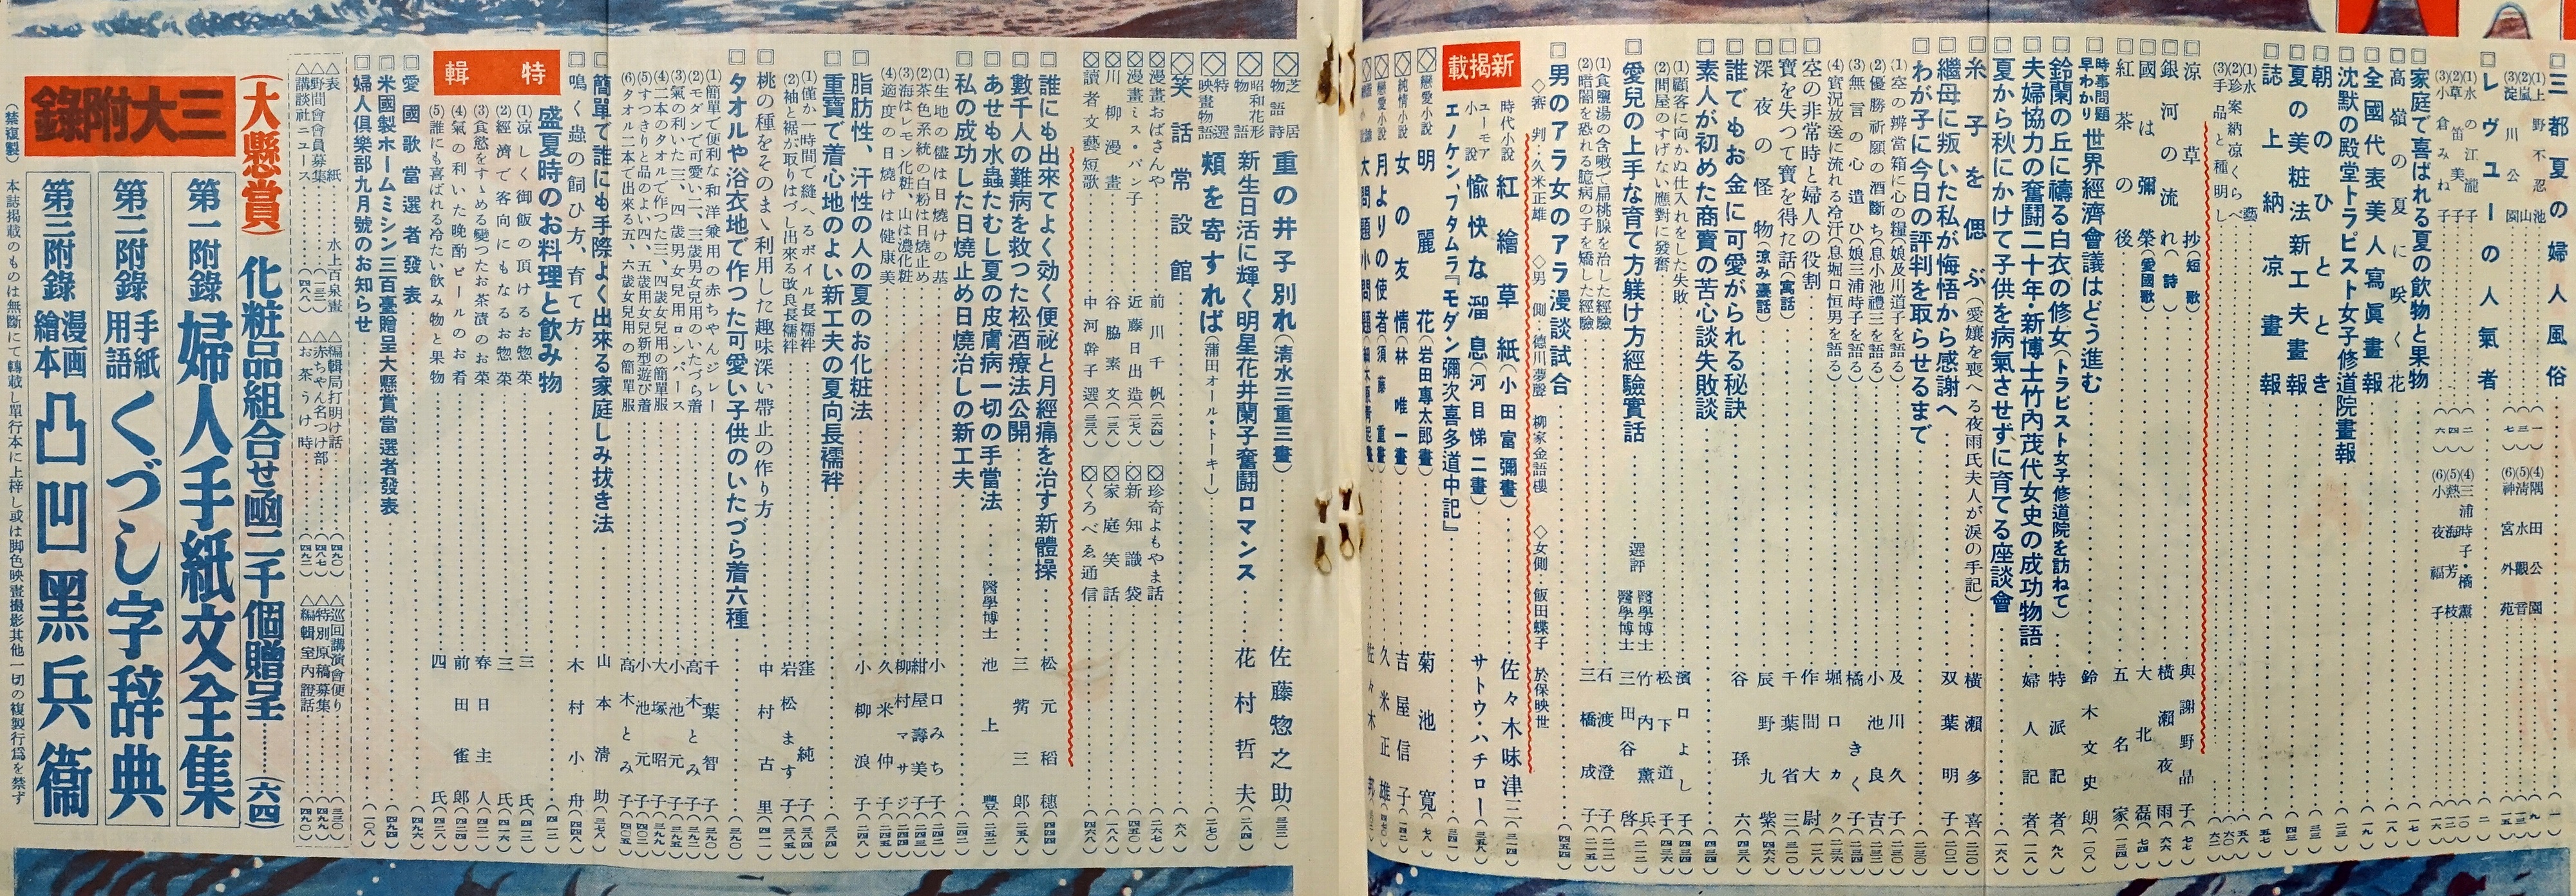 三都夏の婦人風俗
(1)上野不忍池
(2)嵐山
(3)淀川公園
(4)隅田公園
(5)清水觀音
(6)神宮外苑
レヴューの人氣者
(1)水の江瀧子
(2)草笛美子
(3)小倉みね子
(4)三浦時子・橘薫
(5)熱海芳枝
(6)小夜福子
家庭で喜ばれる夏の飲物と果物
高嶺の夏に咲く花
全國代表美人寫眞畫報
沈默の殿堂トラピスト女子修道院畫報
朝のひととき
夏の美粧法新工夫畫報
誌上納凉畫報
(1)水藝
(2)珍案納凉くらべ
(3)手品と種明し
凉草抄(短歌) 與謝野晶子
銀河の流れ(詩) 横瀬夜雨
國は彌榮(愛國歌) 大北磊
紅茶の後 五名家
時事問題早わかり 世界經濟會議はどう進む 鈴木文史朗
鈴蘭の丘に禱る白衣の修女(トラピスト女子修道院を訪ねて) 特派記者
夫婦協力の奮鬪二十年・新博士竹内茂代女史の成功物語 婦人記者
夏から秋にかけて子供を病氣させずに育てる座談會
糸子を偲ぶ(愛孃を喪へる夜雨氏夫人が涙の手記) 横瀬多喜
繼母に叛いた私が悔悟から感謝へ 双葉明子
わが子に今日の評判を取らせるまで
(1)空の辨當箱に心の糧(娘及川道子を語る) 及川久子
(2)優勝祈願の酒斷ち(息小池禮三を語る) 小池良吉
(3)無言の心遣ひ(娘三浦時子を語る) 橘きく子
(4)實況放送に流れる冷汗(息堀口恒男を語る) 堀口カク
空の非常時と婦人の役割 作間大尉
寶を失つて寶を得た話(寓話) 千葉省三
深夜の怪物(凉み臺話) 辰野九紫
誰でもお金に可愛がられる秘訣 谷孫六
素人が初めた商賣の苦心談失敗談
(1)顧客に向かぬ仕入れをした失敗 濱口よし子
(2)問屋のすげない應對に發奮 松下道子
愛兒の上手な育て方躾け方經驗實話
選評 醫學博士 竹内薫兵
醫學博士 三田谷啓
(1)食鹽湯の含嗽で扁桃腺を治した經驗 石渡澄子
(2)暗闇を恐れる臆病の子を矯した經驗 三橋成子
男のアラ女のアラ漫談試合
◇審判・久米正雄 ◇男側・德川夢聲 柳家金語樓 ◇女側・飯田蝶子 於保映世
新揭載
時代小説 紅繪草紙(小田富彌畫) 佐々木味津三
ユーモア小説 愉快な溜息(河目悌二畫) サトウ・ハチロー
エノケン、フタムラ『モダン彌次喜多道中記』
戀愛小説 明麗花(岩田專太郎畫) 菊池寬
純情小説 女の友情(林唯一畫) 吉屋信子
戀愛小説 月よりの使者(須藤重畫) 久米正雄
芝居物語 重の井子別れ(清水三重三畫) 佐藤惣之助
昭和花形物語 新生日活に輝く明星花井蘭子奮鬪ロマンス 花村哲夫
特選映畫物語 頰を寄すれば(蒲田オール・トーキー)
笑話常設館
漫畫おばさんや 前川千帆
漫畫ミス・バン子 近藤日出造
川柳漫畫 谷脇素文
讀者文藝短歌 中河幹子選
珍奇よもやま話
新知識袋
家庭笑話
くろべゑ通信
誰にも出來てよく効く便祕と月經痛を治す新體操 松元稻穗
數千人の難病を救つた松酒療法公開 三觜三郎
あせも水蟲たむし夏の皮膚病一切の手當法 醫學博士 池上豐
私の成功した日燒止め日燒治しの新工夫
(1)生地の儘は日燒けの基 小口みち子
(2)茶色系統の白粉は日燒止め 紺屋壽美子
(3)海はレモン化粧、山は濃化粧 柳村マサジ
(4)適度の日燒けは健康美 久米仲子
脂肪性、汗性の人の夏のお化粧法 小柳浪子
重寶で着心地のよい新工夫の夏向長襦袢
(1)僅か一時間で縫へるボイル長襦袢 窪純子
(2)袖と裾が取りはづし出來る改良長襦袢 岩松ます子
桃の種をそのまゝ利用した趣味深い帶止の作り方 中村古里
タオルや浴衣地で作つた可愛い子供のいたづら着六種
(1)簡單で便利な和洋兼用の赤ちゃんジレー 千葉智子
(2)モダンで可愛い二、三歳男女兒用のいたづら着 高木とみ子
(3)氣の利いた三、四歳男女兒用ロンパース 小池元子
(4)二本のタオルで作つた三、四歳女兒用の簡單服 大塚昭子
(5)すつきりと品のよい四、五歳用女兒新型遊び着 小池元子
(6)タオル二本で出來る五、六歳女兒用の簡單服 高木とみ子
簡單で誰にも手際よく出來る家庭しみ拔き法 山本清助
鳴く蟲の飼ひ方、育て方 木村小舟
特輯
盛夏時のお料理と飲み物
(1)凉しく御飯の頂けるお惣菜 三氏
(2)經濟で客向にもなるお惣菜 三氏
(3)食慾をすゝめる變つたお茶漬のお菜 春日主人
(4)氣の利いた晩酌ビールのお肴 前田雀郎
(5)誰にも喜ばれる冷たい飲み物と果物 四氏
愛國歌當選者發表
米國製ホームミシン三百臺贈呈大懸賞當選者發表
婦人倶樂部九月號のお知らせ
△表紙 水上百泉畫
△野間會會員募集
△講談社ニュース
△編輯局打明け話
△赤ちゃん名つけ部
△お茶うけ時
△巡回講演會便り
△特別原稿募集
△編輯室內證話
(大懸賞)化粧品組合せ凾二千個贈呈(六四)
三大附錄
第一附錄 婦人手紙文全集
第二附錄 手紙用語 くづし字辞典
第三附錄 漫画繪本 凸凹黑兵衞
(禁複製) 本誌揭載のものは無斷にて轉載し單行本に上梓し或は脚色映畫撮影其他一切の複製行爲を禁ず